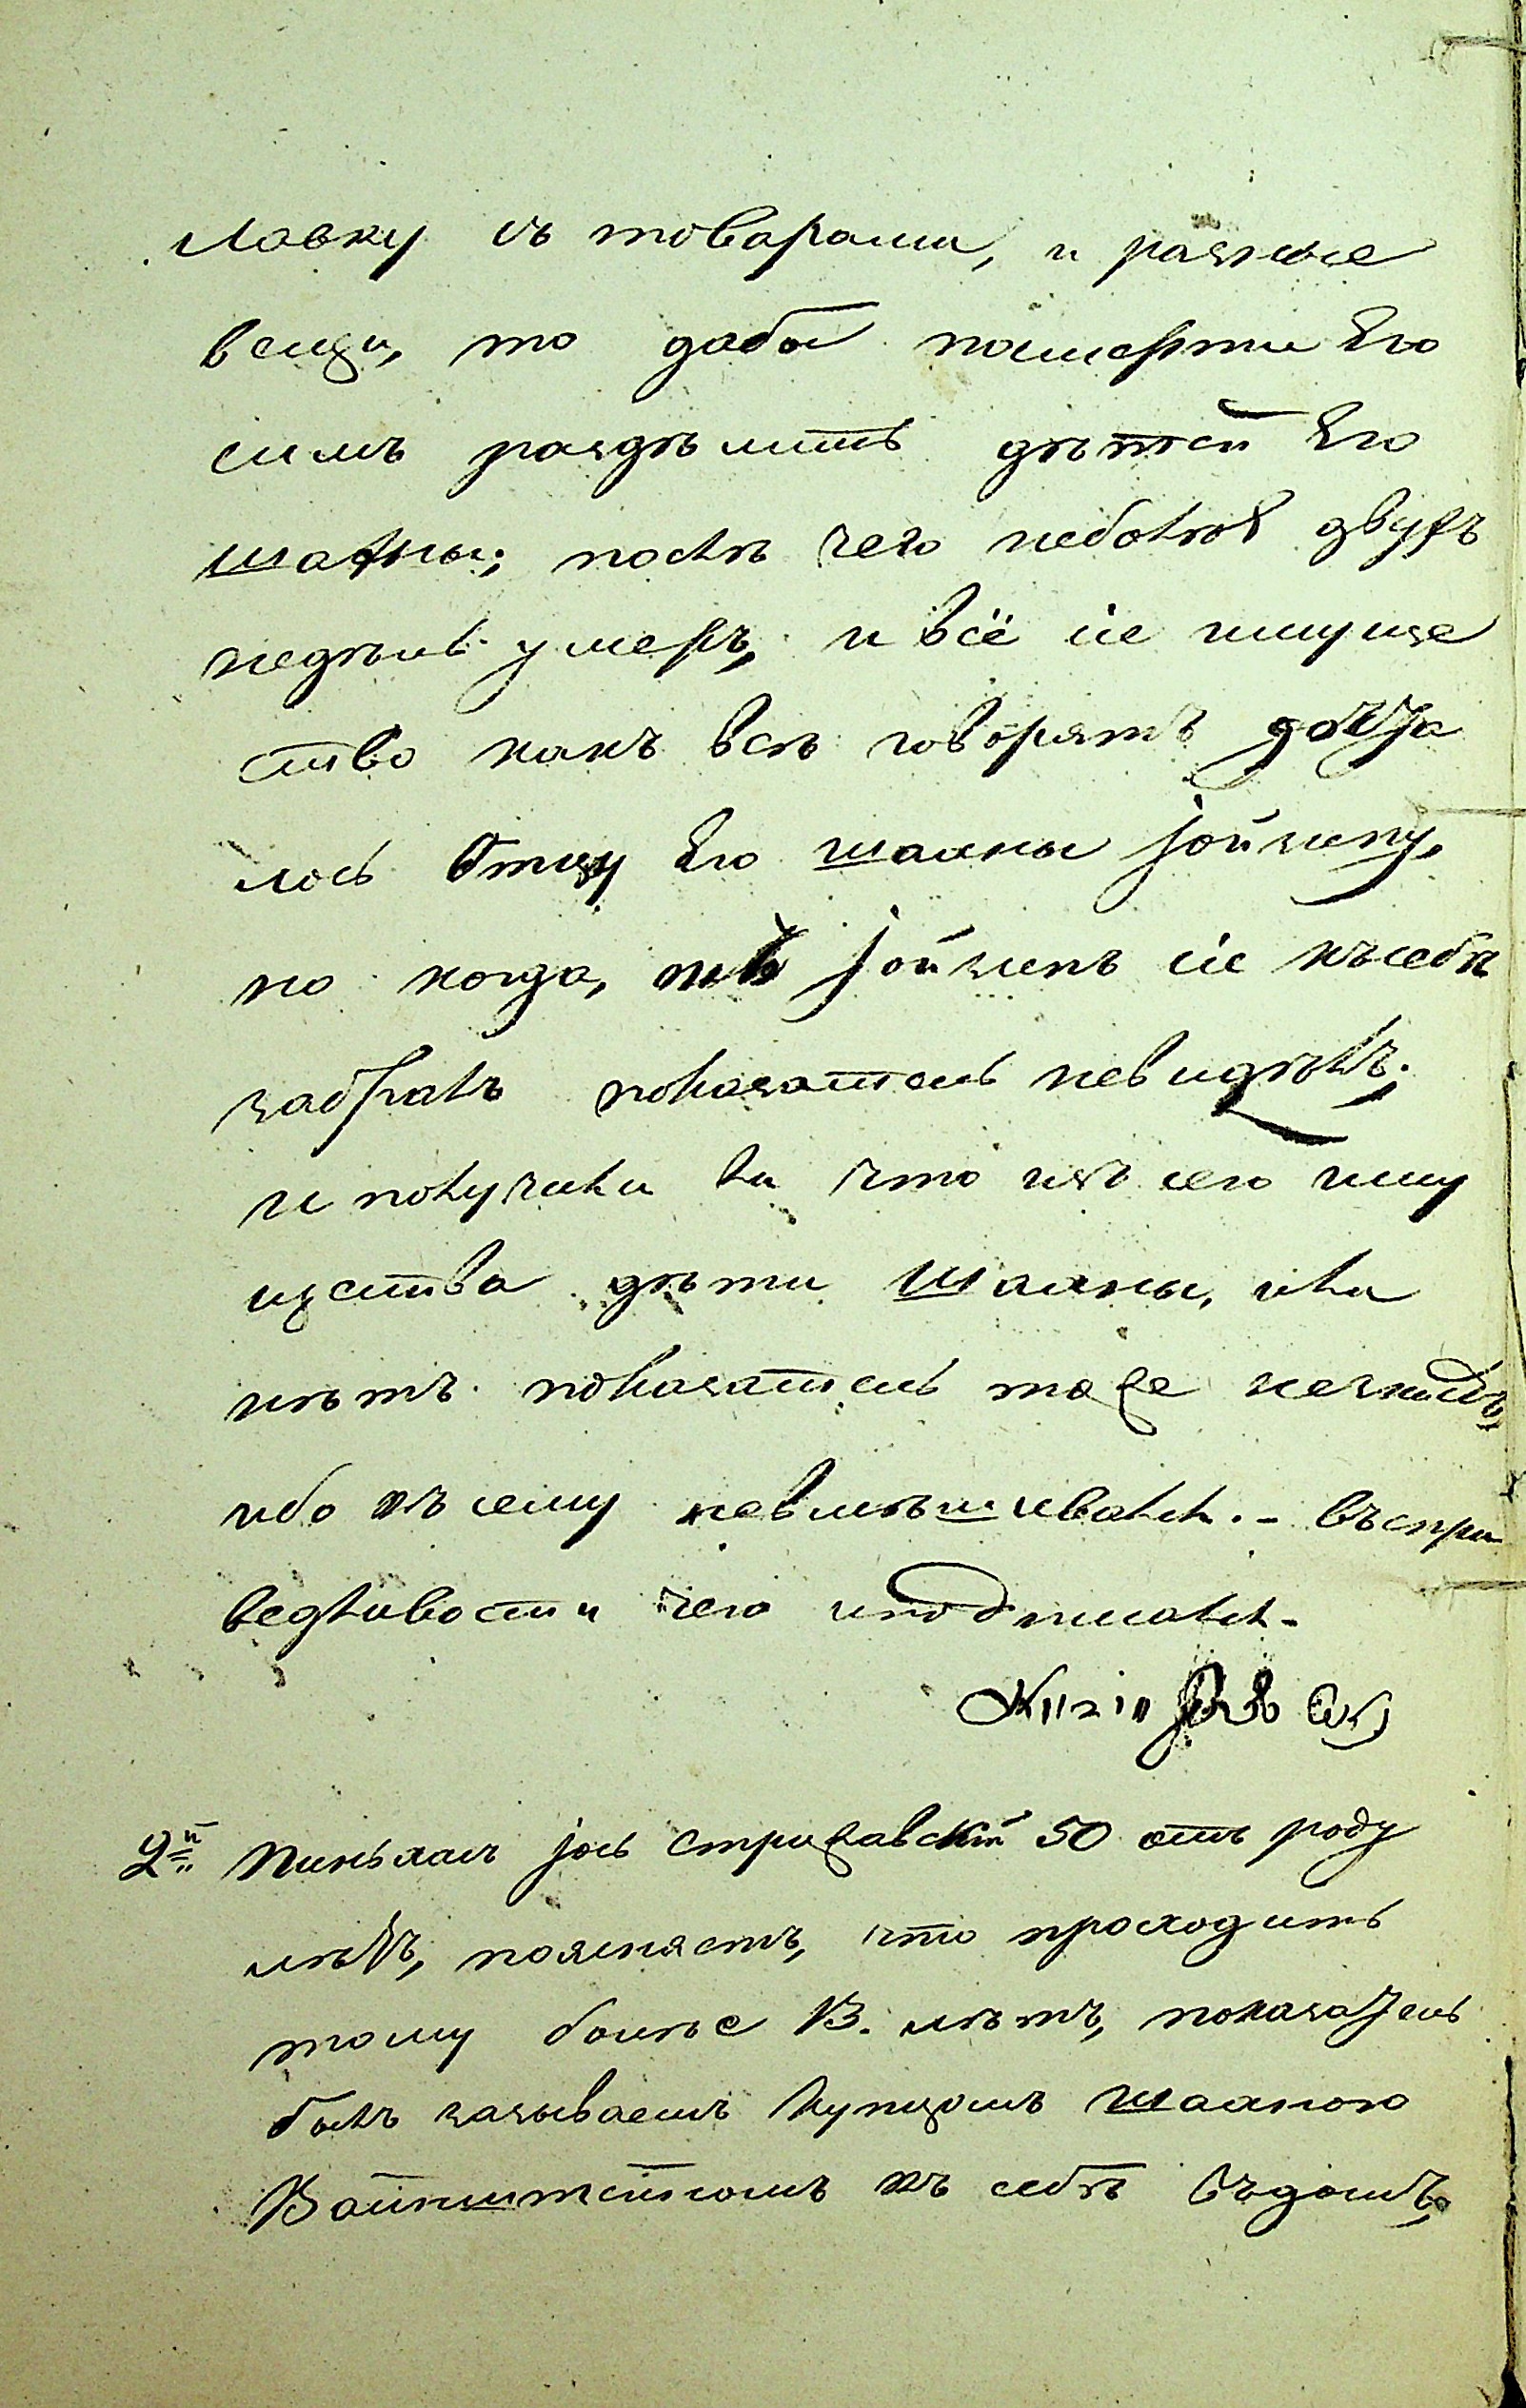 лавку съ товарами, и разные
вещи, то дабы посмерти Его
симъ раздѣлить дѣтей Его
шааны; послѣ чего неболѣе двухъ
недѣль умеръ, и всё сіе имуще
ство какъ всѣ говорятъ доста
лось Отцу Его шааны Іойнику,
но когда, Іойникъ сіе късебѣ
забралъ показатель невидѣлъ;
и получили ли что изъ сего иму
щества дѣти шааны, или
нѣтъ показатель тоже незнаетъ,
ибо къ сему невмѣшивался. - Въспра
ведливости чего иподписался -
2й Пиньхасъ Іось Стрижавскій 50 отъ роду
лѣтъ, поясняетъ, что проходитъ
тому болѣе 13. лѣтъ, показатель
былъ зазываемъ Купцомъ шааною
Вайнштейномъ къ себѣ въдомъ,